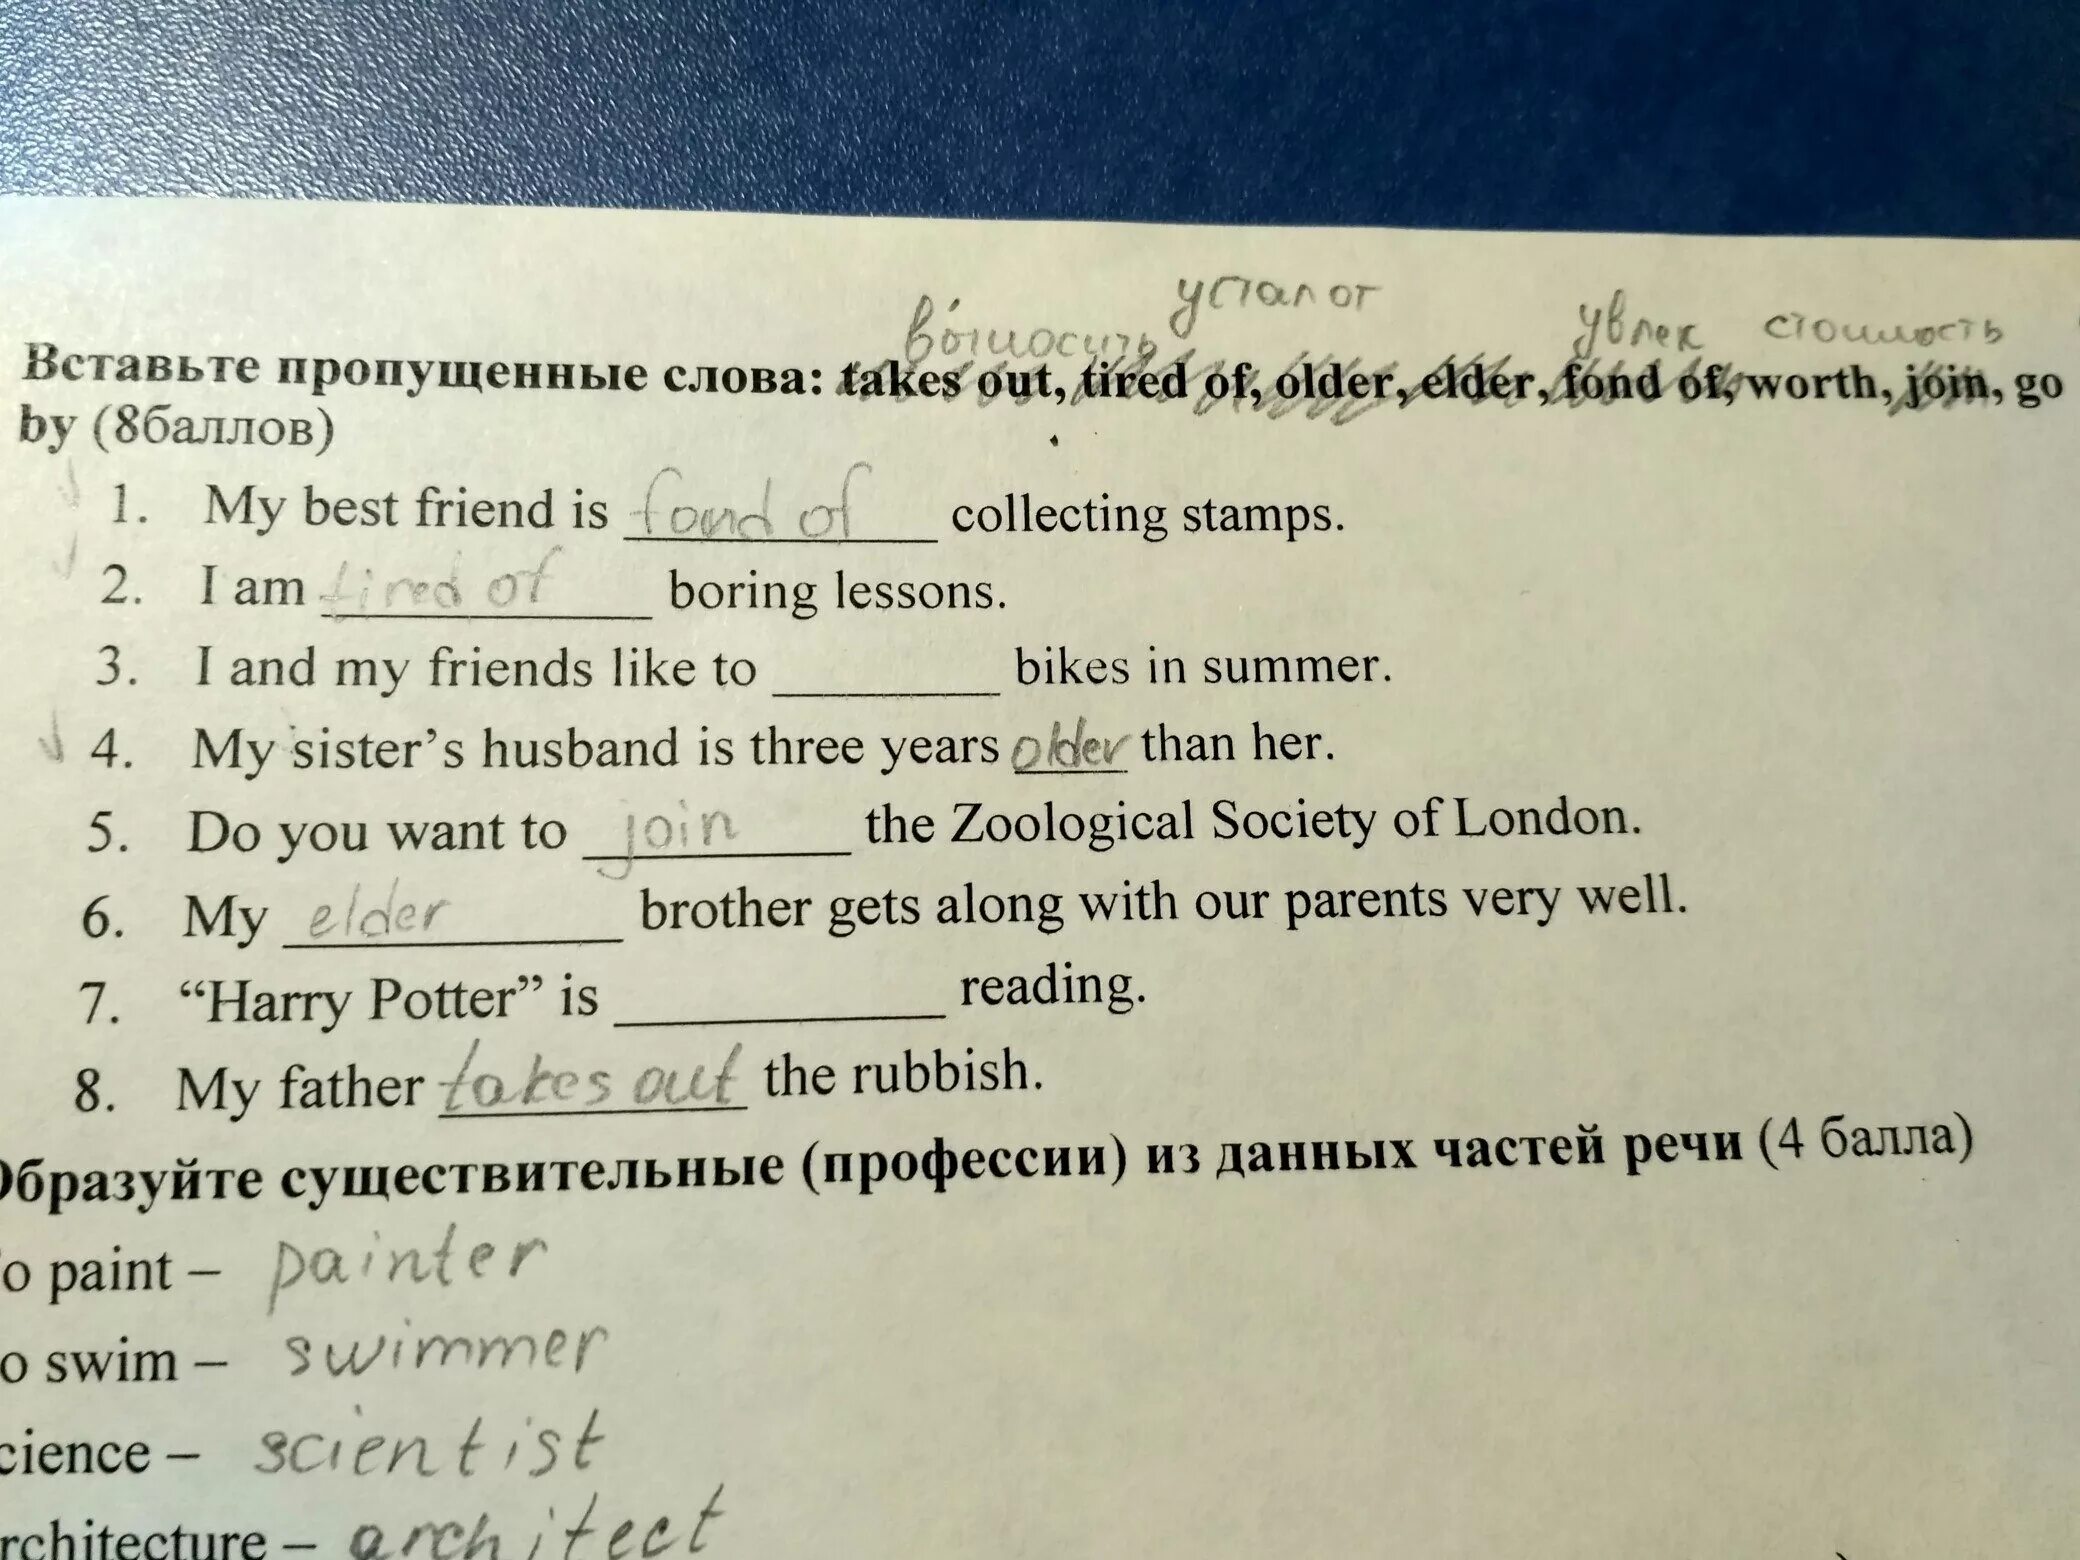 усталот
выносить увлек стоимость
Вставьте пропущенные слова: takes out, tired of, older, elder, fond of, worth, join, go
by (8баллов)
1. My best friend is fond of collecting stamps.
2. I am tired of boring lessons.
3. I and my friends like to ________ bikes in summer.
4. My sister’s husband is three years older than her.
5. Do you want to join the Zoological Society of London.
6. My elder brother gets along with our parents very well.
7. “Harry Potter” is ____________ reading.
8. My father takes out the rubbish.
Образуйте существительные (профессии) из данных частей речи (4 балла)
o paint – painter
o swim – swimmer
cience – scientist
rchitecture – architect